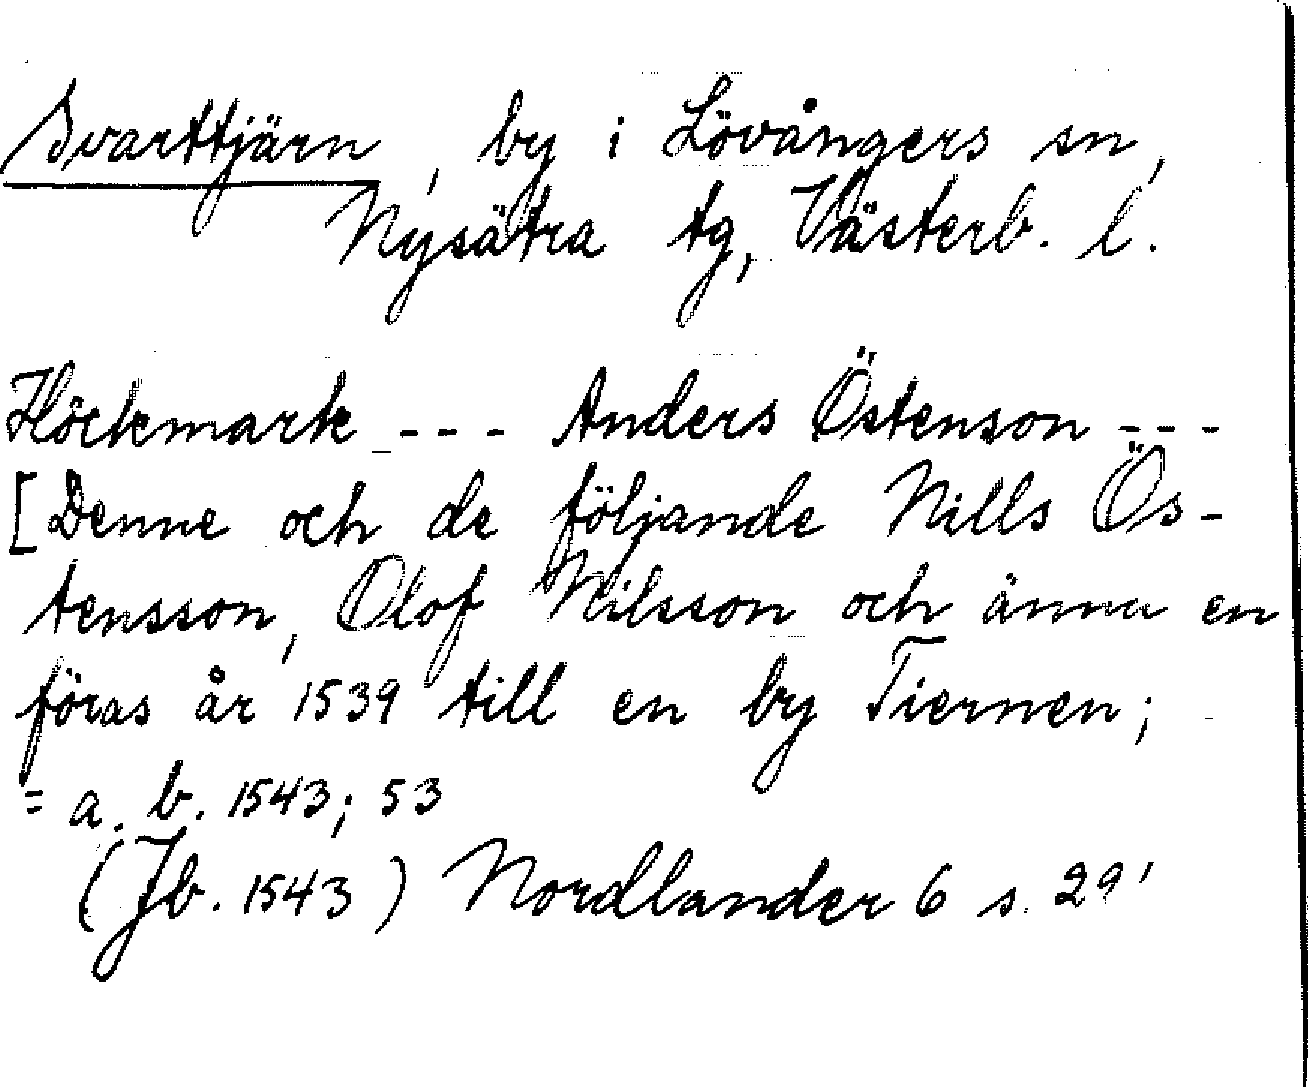 Svarttjärn, by i Lövångers sn,
Nysätra tg, Västerb. l.
Höckmark --- Anders Östenson ---
[Denne och de följande Nills Ös-
tensson, Olof Nilsson och ännu en
föras år 1539 till en by Tiernen;
= a. b. 1543; 53
(Jb. 1543) Nordlander 6 s. 29'